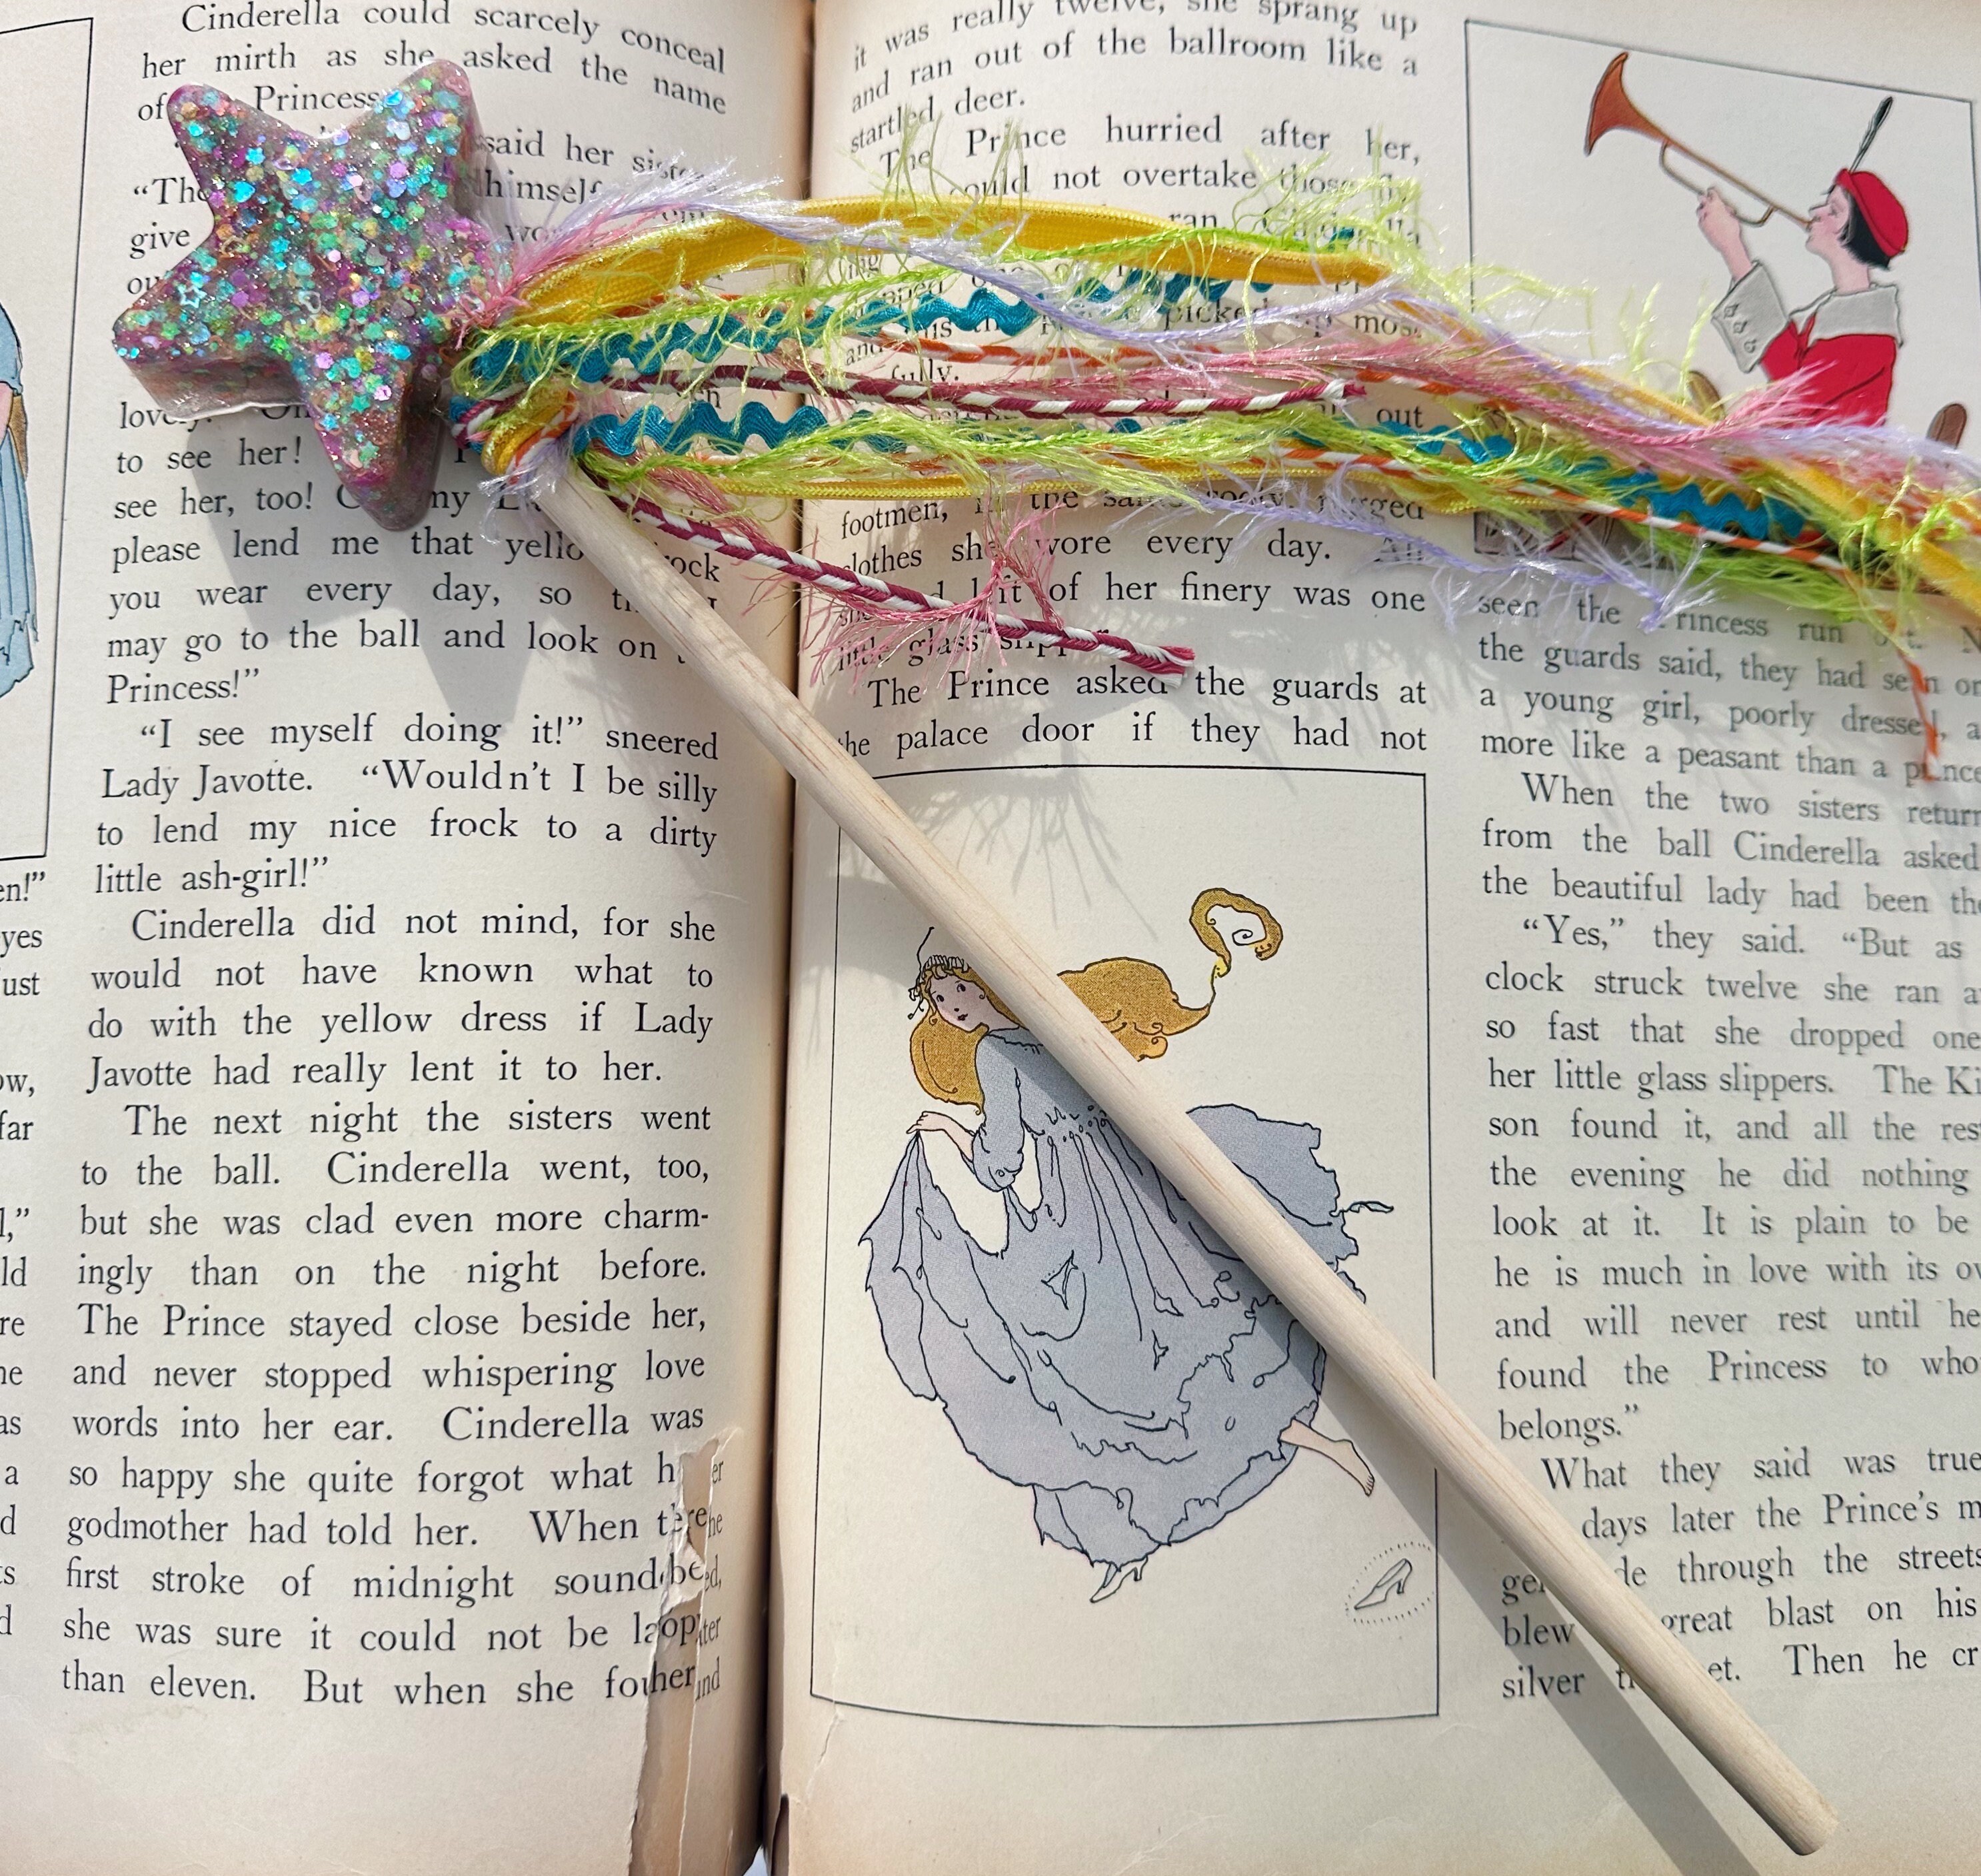 en!”
yes
ust
ow,
far
l,”
ld
re
ne
as
a
d
ts
d
Cinderella could scarcely conceal
her mirth as she asked the name
of Princess
said her
“The himself
give
lov On
to see her!
see her, too! my
please lend me that rock
you wear every day, so I
may go to the ball and look on
Princess!”
“I see myself doing it!” sneered
Lady Javotte. “Wouldn’t I be silly
to lend my nice frock to a dirty
little ash-girl!”
Cinderella did not mind, for she
would not have known what to
do with the yellow dress if Lady
Javotte had really lent it to her.
The next night the sisters went
to the ball. Cinderella went, too,
but she was clad even more charm-
ingly than on the night before.
The Prince stayed close beside her,
and never stopped whispering love
words into her ear. Cinderella was
so happy she quite forgot what h er
godmother had told her. When
first stroke of midnight sound ed,
she was sure it could not be la ter
than eleven. But when she fo und
it was really twelve, she sprang up
and ran out of the ballroom like a
startled deer.
The Prince hurried after her,
could not overtake those
ran
picked
and
fully.
out
footmen, the same rged
clothes she wore every day. All
left of her finery was one
little glass
The Prince asked the guards at
the palace door if they had not
seen the Princess run out. N
the guards said, they had seen on
a young girl, poorly dressed, a
more like a peasant than a prince
When the two sisters return
from the ball Cinderella asked
the beautiful lady had been the
“Yes,” they said. “But as
clock struck twelve she ran a
so fast that she dropped one
her little glass slippers. The Ki
son found it, and all the res
the evening he did nothing
look at it. It is plain to be
he is much in love with its ow
and will never rest until he
found the Princess to who
belongs.”
What they said was true
days later the Prince’s m
ge de through the streets
blew great blast on his
silver et. Then he cr